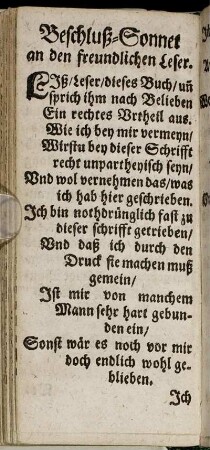 Beschluß-Sonnet
an den freundlichen Leser.
LIß/Leser/dieses Buch/uñ
sprich ihm nach Belieben
Ein rechtes Vrtheil aus.
Wie ich bey mir vermeyn/
Wirstu bey dieser Schrifft
recht unpartheyisch seyn/
Vnd wol vernehmen das/was
ich hab hier geschrieben.
Ich bin nothdrünglich fast zu
dieser schrifft getrieben/
Vnd daß ich durch den
Druck sie machen muß
gemein/
Ist mir von manchem
Mann sehr hart gebun-
den ein/
Sonst wär es noch vor mir
doch endlich wohl ge-
blieben.
Ich